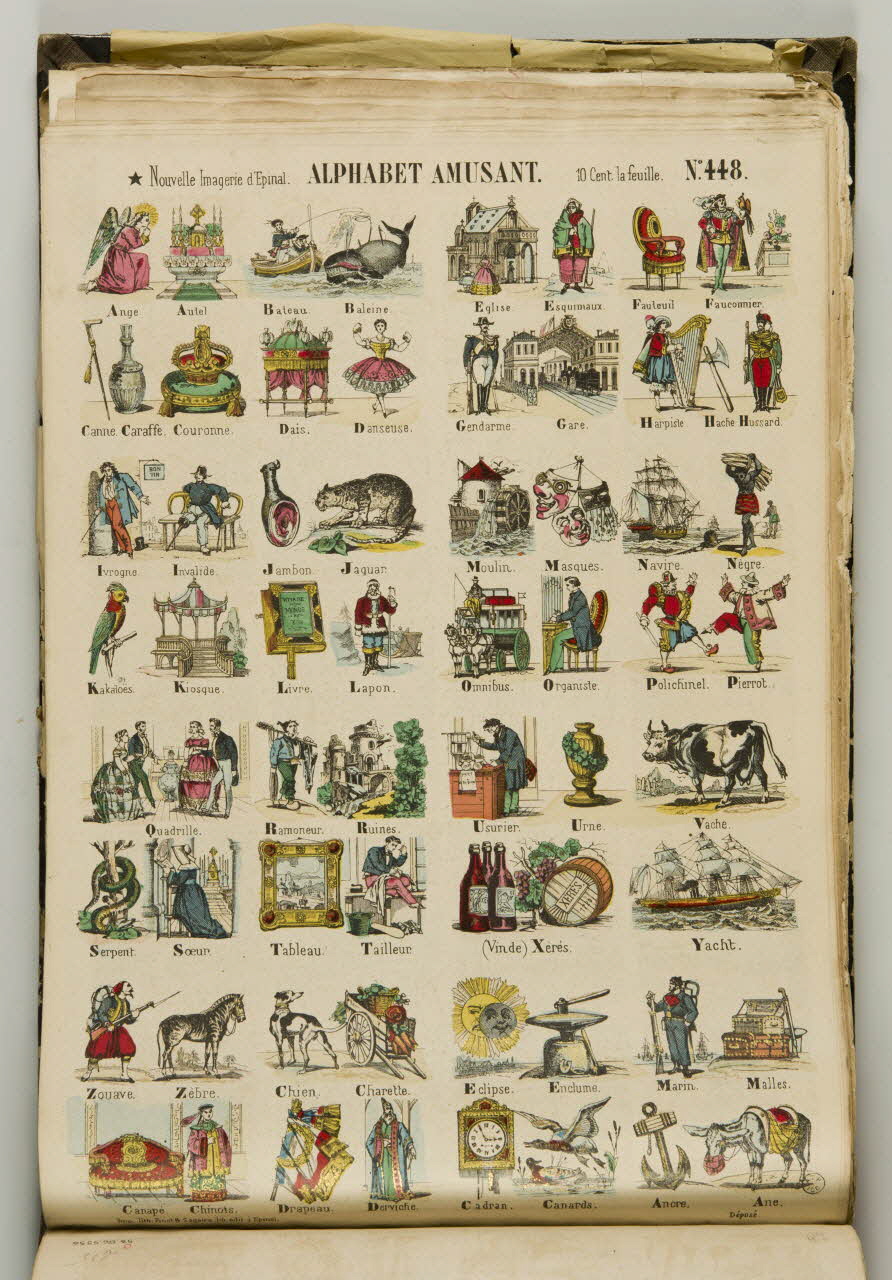 ★ Nouvelle Imagerie d'Epinal. ALPHABET AMUSANT. 10 Cent. la feuille. N.º 448.
Ange Autel Bateau. Baleine. Eglise. Esquimaux. Fauteuil Fauconnier.
Canne. Caraffe. Couronne. Dais. Danseuse. Gendarme. Gare. Harpiste Hache Hussard.
BON
VIN
Ivrogne. Invalide. Jambon. Jaguar. Moulin. Masques. Navire. Nègre.
Kakatoes. Kiosque. Livre. Lapon. Omnibus. Organiste. Polichinel. Pierrot.
Quadrille. Ramoneur. Ruines. Usurier. Urne. Vache.
XERES
Serpent. Sœur. Tableau. Tailleur. (Vin de) Xérés. Yacht.
Zouave. Zèbre. Chien. Charette. Eclipse. Enclume. Marin. Malles.
Canapé Chinois. Drapeau. Derviche. Cadran. Canards. Ancre. Ane.
Déposé.